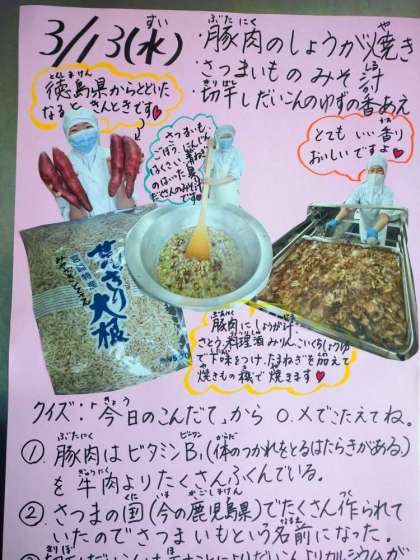 3/13(水)
・豚肉のしょうが焼き
・さつまいものみそ汁
・切干しだいこんのゆずの香あえ
徳島県からとどいた
なると きんときです♥
さつまいも、
ごぼう、にんじん
はくさい、葉ねぎ
のはいった具
だくさんのみそ汁
です♥
とても いい 香り
おいしいですよ♥
せんぎり大根
豚肉にしょうが汁、
さとう、料理酒、みりん、こいくちしょうゆ
で下味をつけ、たまねぎを加えて
焼きもの機で焼きます♥
クイズ:「今日のこんだて」から ○.×でこたえてね。
① 豚肉はビタミンB₁(体のつかれをとるはたらきがある。)
を牛肉よりたくさんふくんでいる。
② さつまの国(今の鹿児島県)でたくさん作られて
いたのでさつまいもという名前になった。